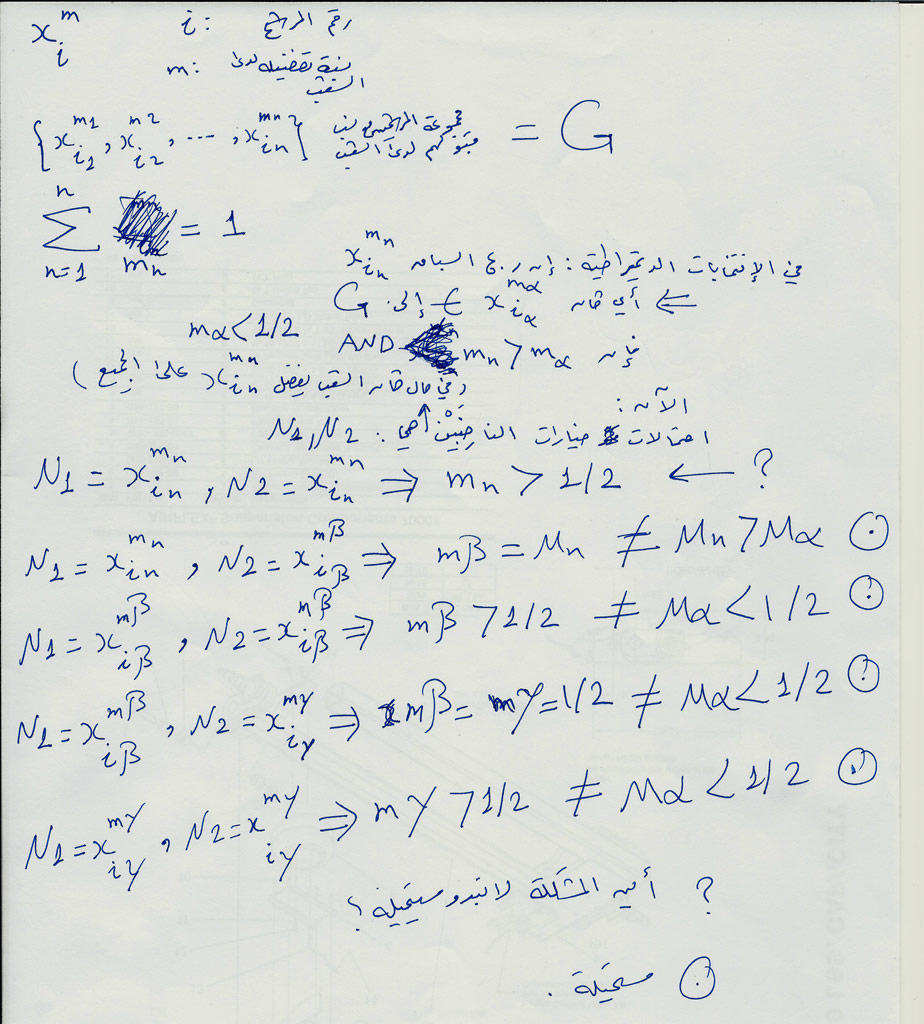 x_i^m i: رقم المرشح
m: نسبة تفضيله لدى الشعب
{x_{i1}^{m1}, x_{i2}^{m2}, ..., x_{in}^{mn}} مجموعة المرشحين و نسب
لدى الشعب = G
∑_{n=1}^{n} m_n = 1
في الإنتخابات الديمقراطية: إن ربح السباق x_{in}^{mn}
⇐ أي كان x_{iα}^{mα} ∈ إلى G
فإن m_n > m_α AND mα < 1/2
(في حال كان الشعب يفضل x_{in}^{mn} على الجميع)
الآن:
احتمالات خيارات الناخبَيْن هي: N1, N2
N1 = x_{in}^{mn}, N2 = x_{in}^{mn} ⇒ m_n > 1/2 ← ?
N1 = x_{in}^{mn}, N2 = x_{iβ}^{mβ} ⇒ mβ = Mn ≠ Mn > Mα
N1 = x_{iβ}^{mβ}, N2 = x_{iβ}^{mβ} ⇒ mβ > 1/2 ≠ Mα < 1/2
N1 = x_{iβ}^{mβ}, N2 = x_{iγ}^{mγ} ⇒ mβ = mγ = 1/2 ≠ Mα < 1/2
N1 = x_{iγ}^{mγ}, N2 = x_{iγ}^{mγ} ⇒ mγ > 1/2 ≠ Mα < 1/2
? أين المشكلة لا تبدو مستحيلة؟
مستحيلة.